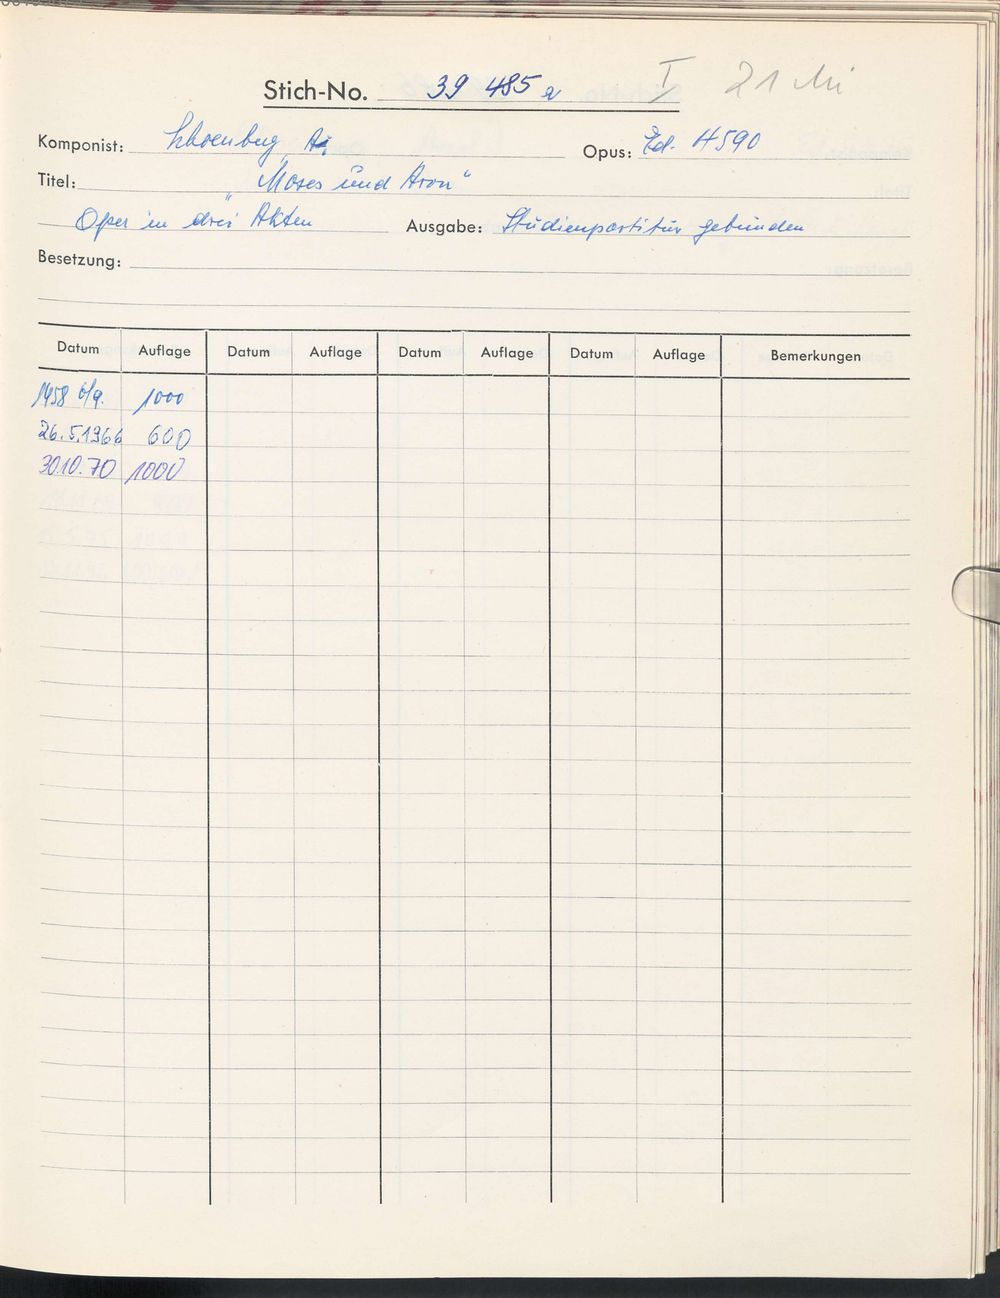 Stich-No. 39 485 a I 21 Mi
Komponist: Schoenberg A. Opus: Ed. 4590
Titel: „Moses und Aron“
Oper in drei Akten Ausgabe: Studienpartitur gebunden
Besetzung:
Datum Auflage Datum Auflage Datum Auflage Datum Auflage Bemerkungen
1958 6/9. 1000
26.5.1966 600
30.10.70 1000